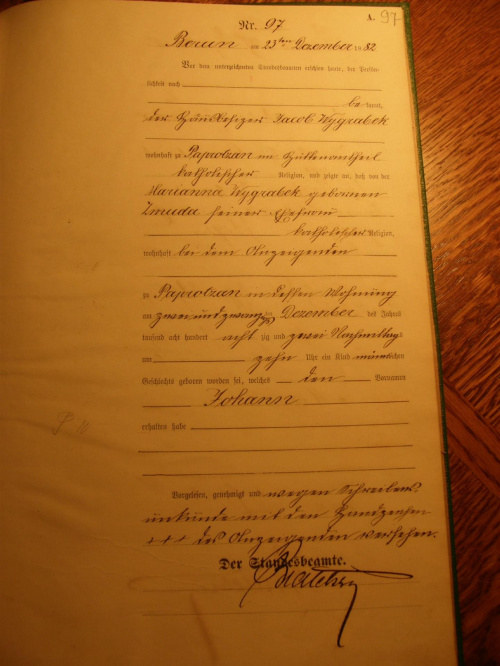 A. 97
Nr. 97
Berun am 23ten Dezember 1882
Vor dem unterzeichneten Standesbeamten erschien heute, der Persön-
lichkeit nach
be kannt,
der Häuslbesitzer Jacob Wygrabek
wohnhaft zu Paprotzan im Hüttenantheil
katholischer Religion, und zeigte an, daß von der
Marianna Wygrabek gebornen
Zmuda seiner Ehefrau
katholischer Religion,
wohnhaft bei dem Anzeigenden
zu Paprotzan in dessen Wohnung
am zwei und zwanzigsten Dezember des Jahres
tausend acht hundert acht zig und zwei Nachmittags
um zehn Uhr ein Kind männlichen
Geschlechts geboren worden sei, welches den Vornamen
Johann
erhalten habe
Vorgelesen, genehmigt und wegen Schreibens
unkunde mit den Handzeichen
+++ des Anzeigenden versehen.
Der Standesbeamte.